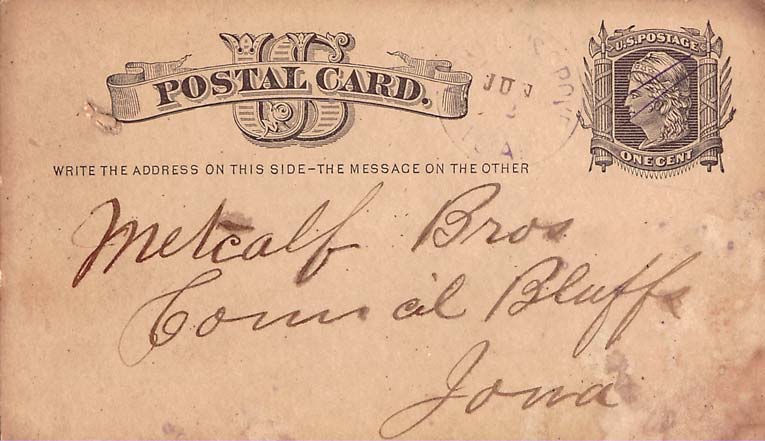 US
POSTAL CARD.
U.S. POSTAGE
ONE CENT
WRITE THE ADDRESS ON THIS SIDE–THE MESSAGE ON THE OTHER
Metcalf Bros
Council Bluffs
Iowa